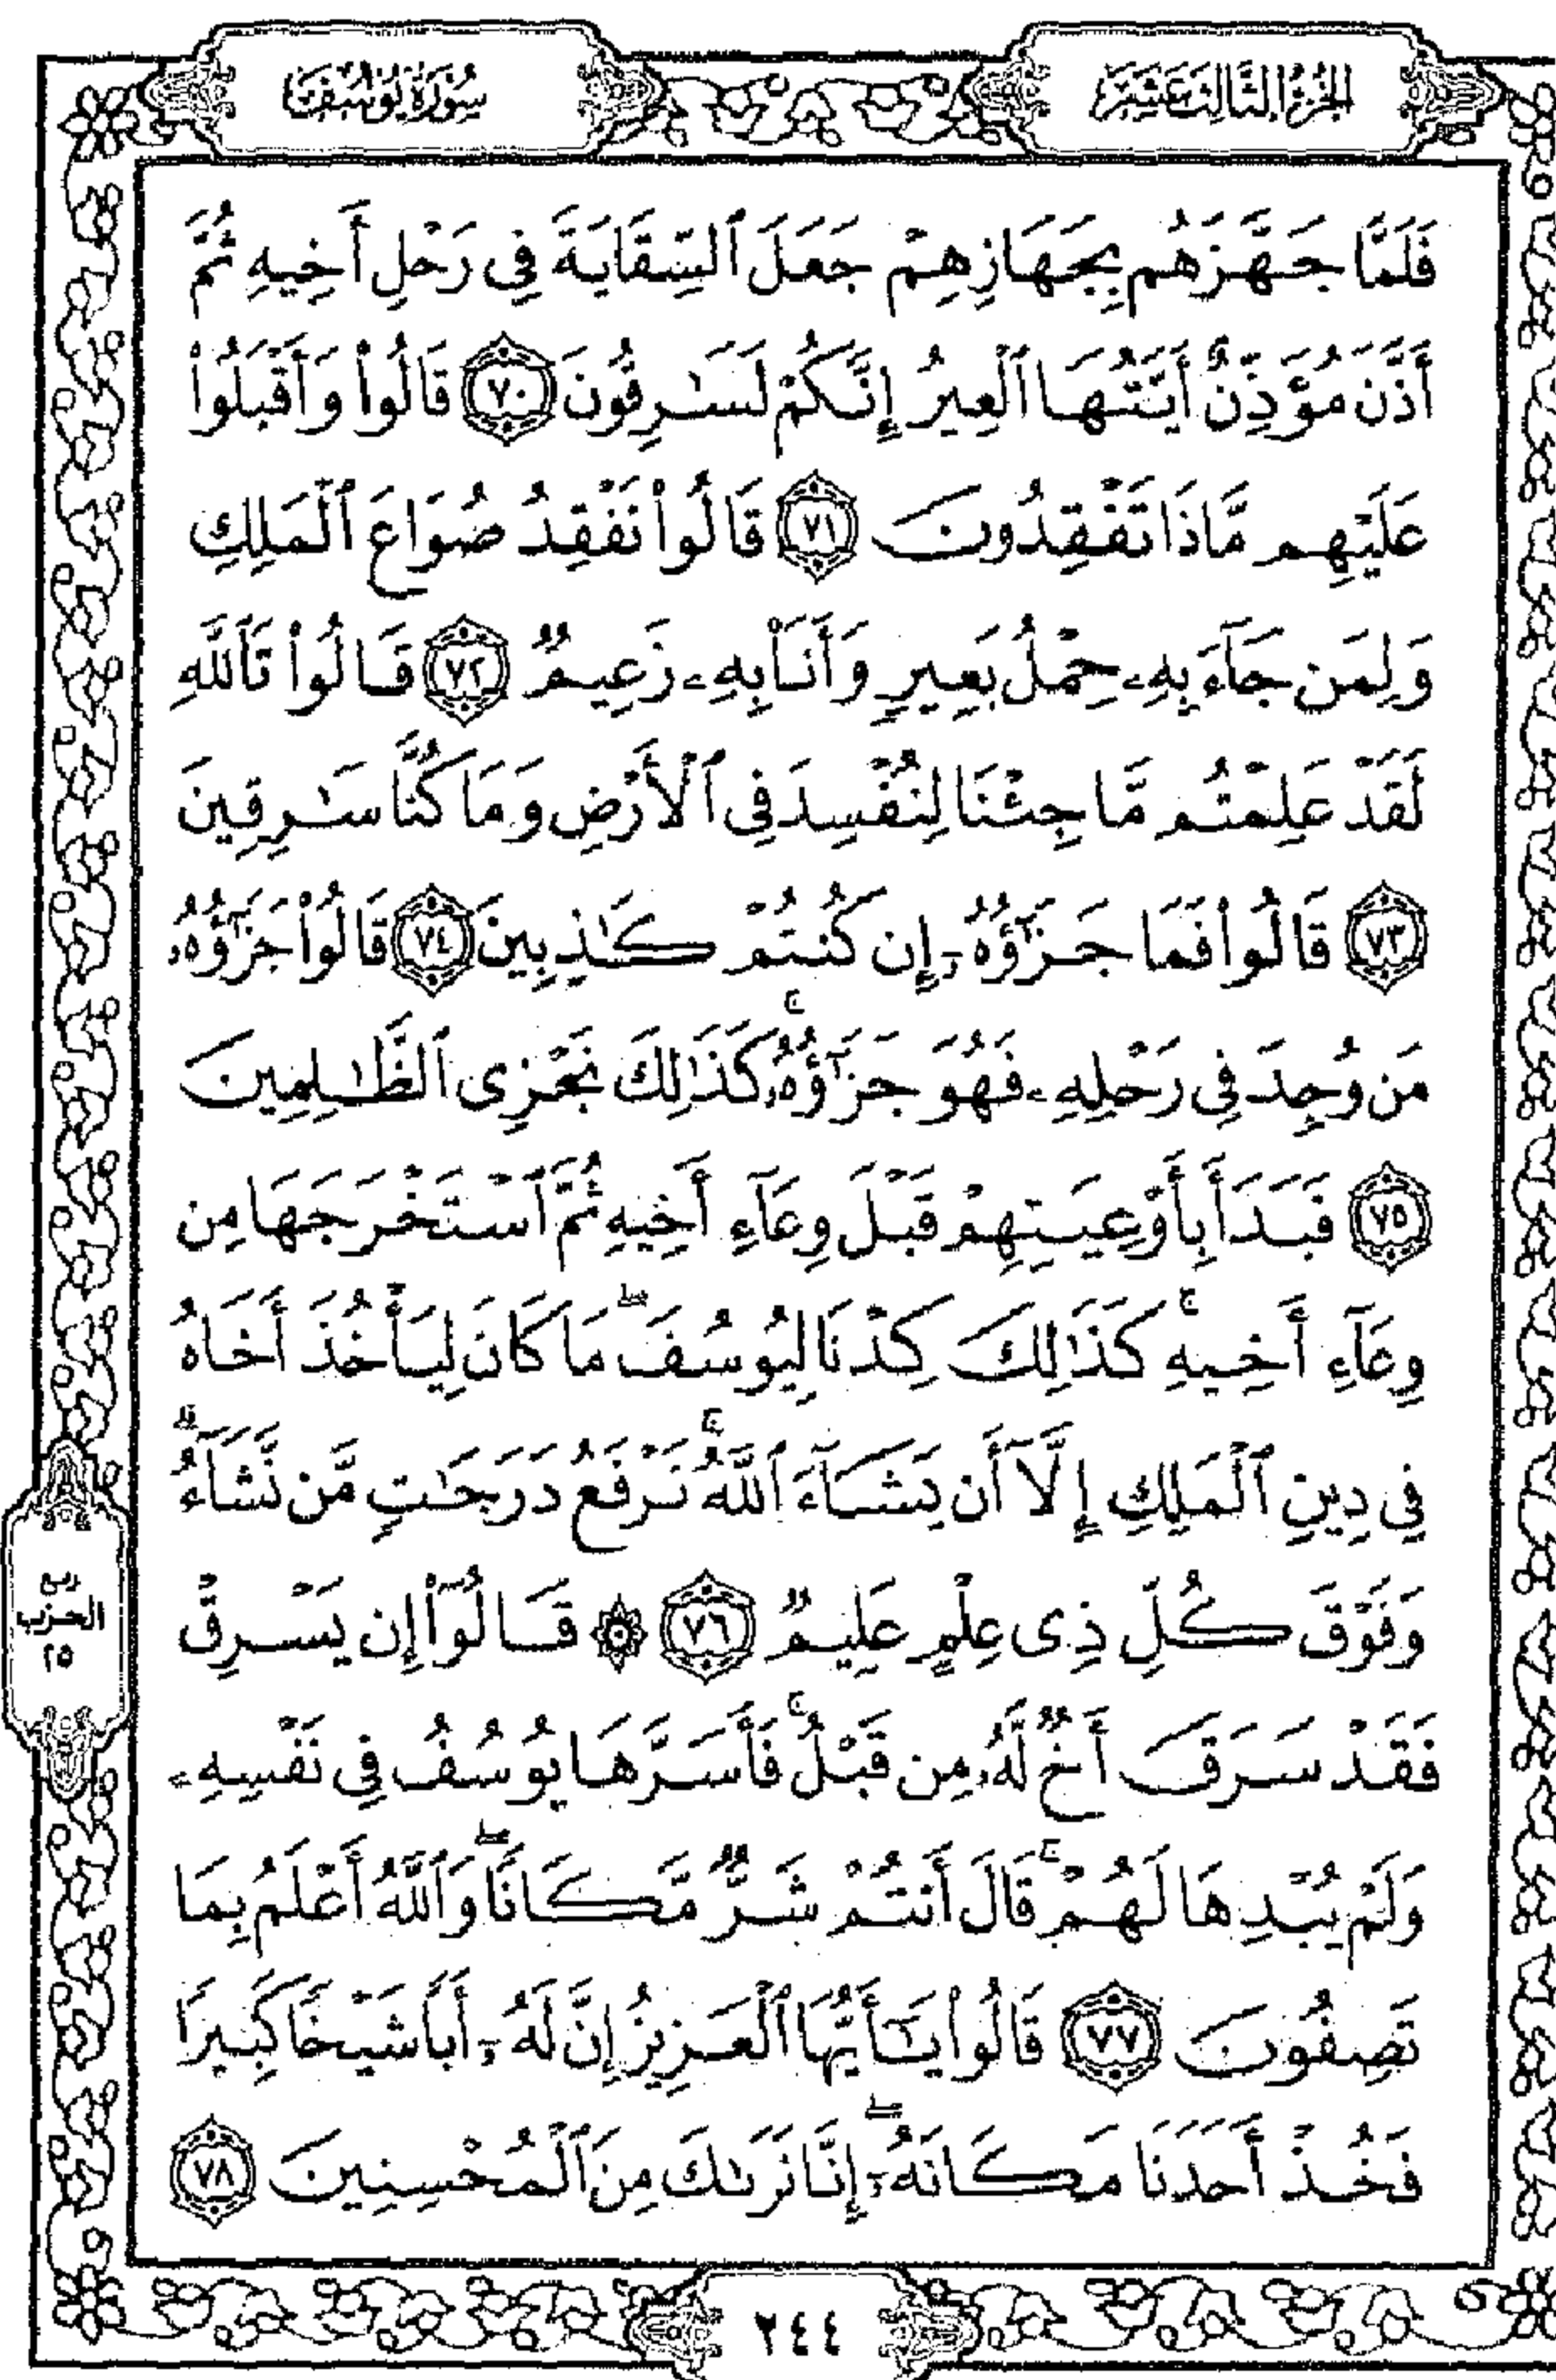 الجزء الثالث عشر
سورة يوسف
فَلَمَّا جَهَّزَهُم بِجَهَازِهِمْ جَعَلَ ٱلسِّقَايَةَ فِي رَحْلِ أَخِيهِ ثُمَّ
أَذَّنَ مُؤَذِّنٌ أَيَّتُهَا ٱلْعِيرُ إِنَّكُمْ لَسَٰرِقُونَ ٧٠ قَالُواْ وَأَقْبَلُواْ
عَلَيْهِم مَّاذَا تَفْقِدُونَ ٧١ قَالُواْ نَفْقِدُ صُوَاعَ ٱلْمَلِكِ
وَلِمَن جَآءَ بِهِۦ حِمْلُ بَعِيرٍ وَأَنَا۠ بِهِۦ زَعِيمٌ ٧٢ قَالُواْ تَٱللَّهِ
لَقَدْ عَلِمْتُم مَّا جِئْنَا لِنُفْسِدَ فِي ٱلْأَرْضِ وَمَا كُنَّا سَٰرِقِينَ
٧٣ قَالُواْ فَمَا جَزَٰٓؤُهُۥٓ إِن كُنتُمْ كَٰذِبِينَ ٧٤ قَالُواْ جَزَٰٓؤُهُۥ
مَن وُجِدَ فِي رَحْلِهِۦ فَهُوَ جَزَٰٓؤُهُۥۚ كَذَٰلِكَ نَجْزِي ٱلظَّٰلِمِينَ
٧٥ فَبَدَأَ بِأَوْعِيَتِهِمْ قَبْلَ وِعَآءِ أَخِيهِ ثُمَّ ٱسْتَخْرَجَهَا مِن
وِعَآءِ أَخِيهِۚ كَذَٰلِكَ كِدْنَا لِيُوسُفَۖ مَا كَانَ لِيَأْخُذَ أَخَاهُ
فِي دِينِ ٱلْمَلِكِ إِلَّآ أَن يَشَآءَ ٱللَّهُۚ نَرْفَعُ دَرَجَٰتٍ مَّن نَّشَآءُۗ
وَفَوْقَ كُلِّ ذِي عِلْمٍ عَلِيمٌ ٧٦ ۞ قَالُوٓاْ إِن يَسْرِقْ
فَقَدْ سَرَقَ أَخٌ لَّهُۥ مِن قَبْلُۚ فَأَسَرَّهَا يُوسُفُ فِي نَفْسِهِۦ
وَلَمْ يُبْدِهَا لَهُمْۚ قَالَ أَنتُمْ شَرٌّ مَّكَانًاۖ وَٱللَّهُ أَعْلَمُ بِمَا
تَصِفُونَ ٧٧ قَالُواْ يَٰٓأَيُّهَا ٱلْعَزِيزُ إِنَّ لَهُۥٓ أَبًا شَيْخًا كَبِيرًا
فَخُذْ أَحَدَنَا مَكَانَهُۥٓۖ إِنَّا نَرَىٰكَ مِنَ ٱلْمُحْسِنِينَ ٧٨
ربع
الحزب
٢٥
٢٤٤